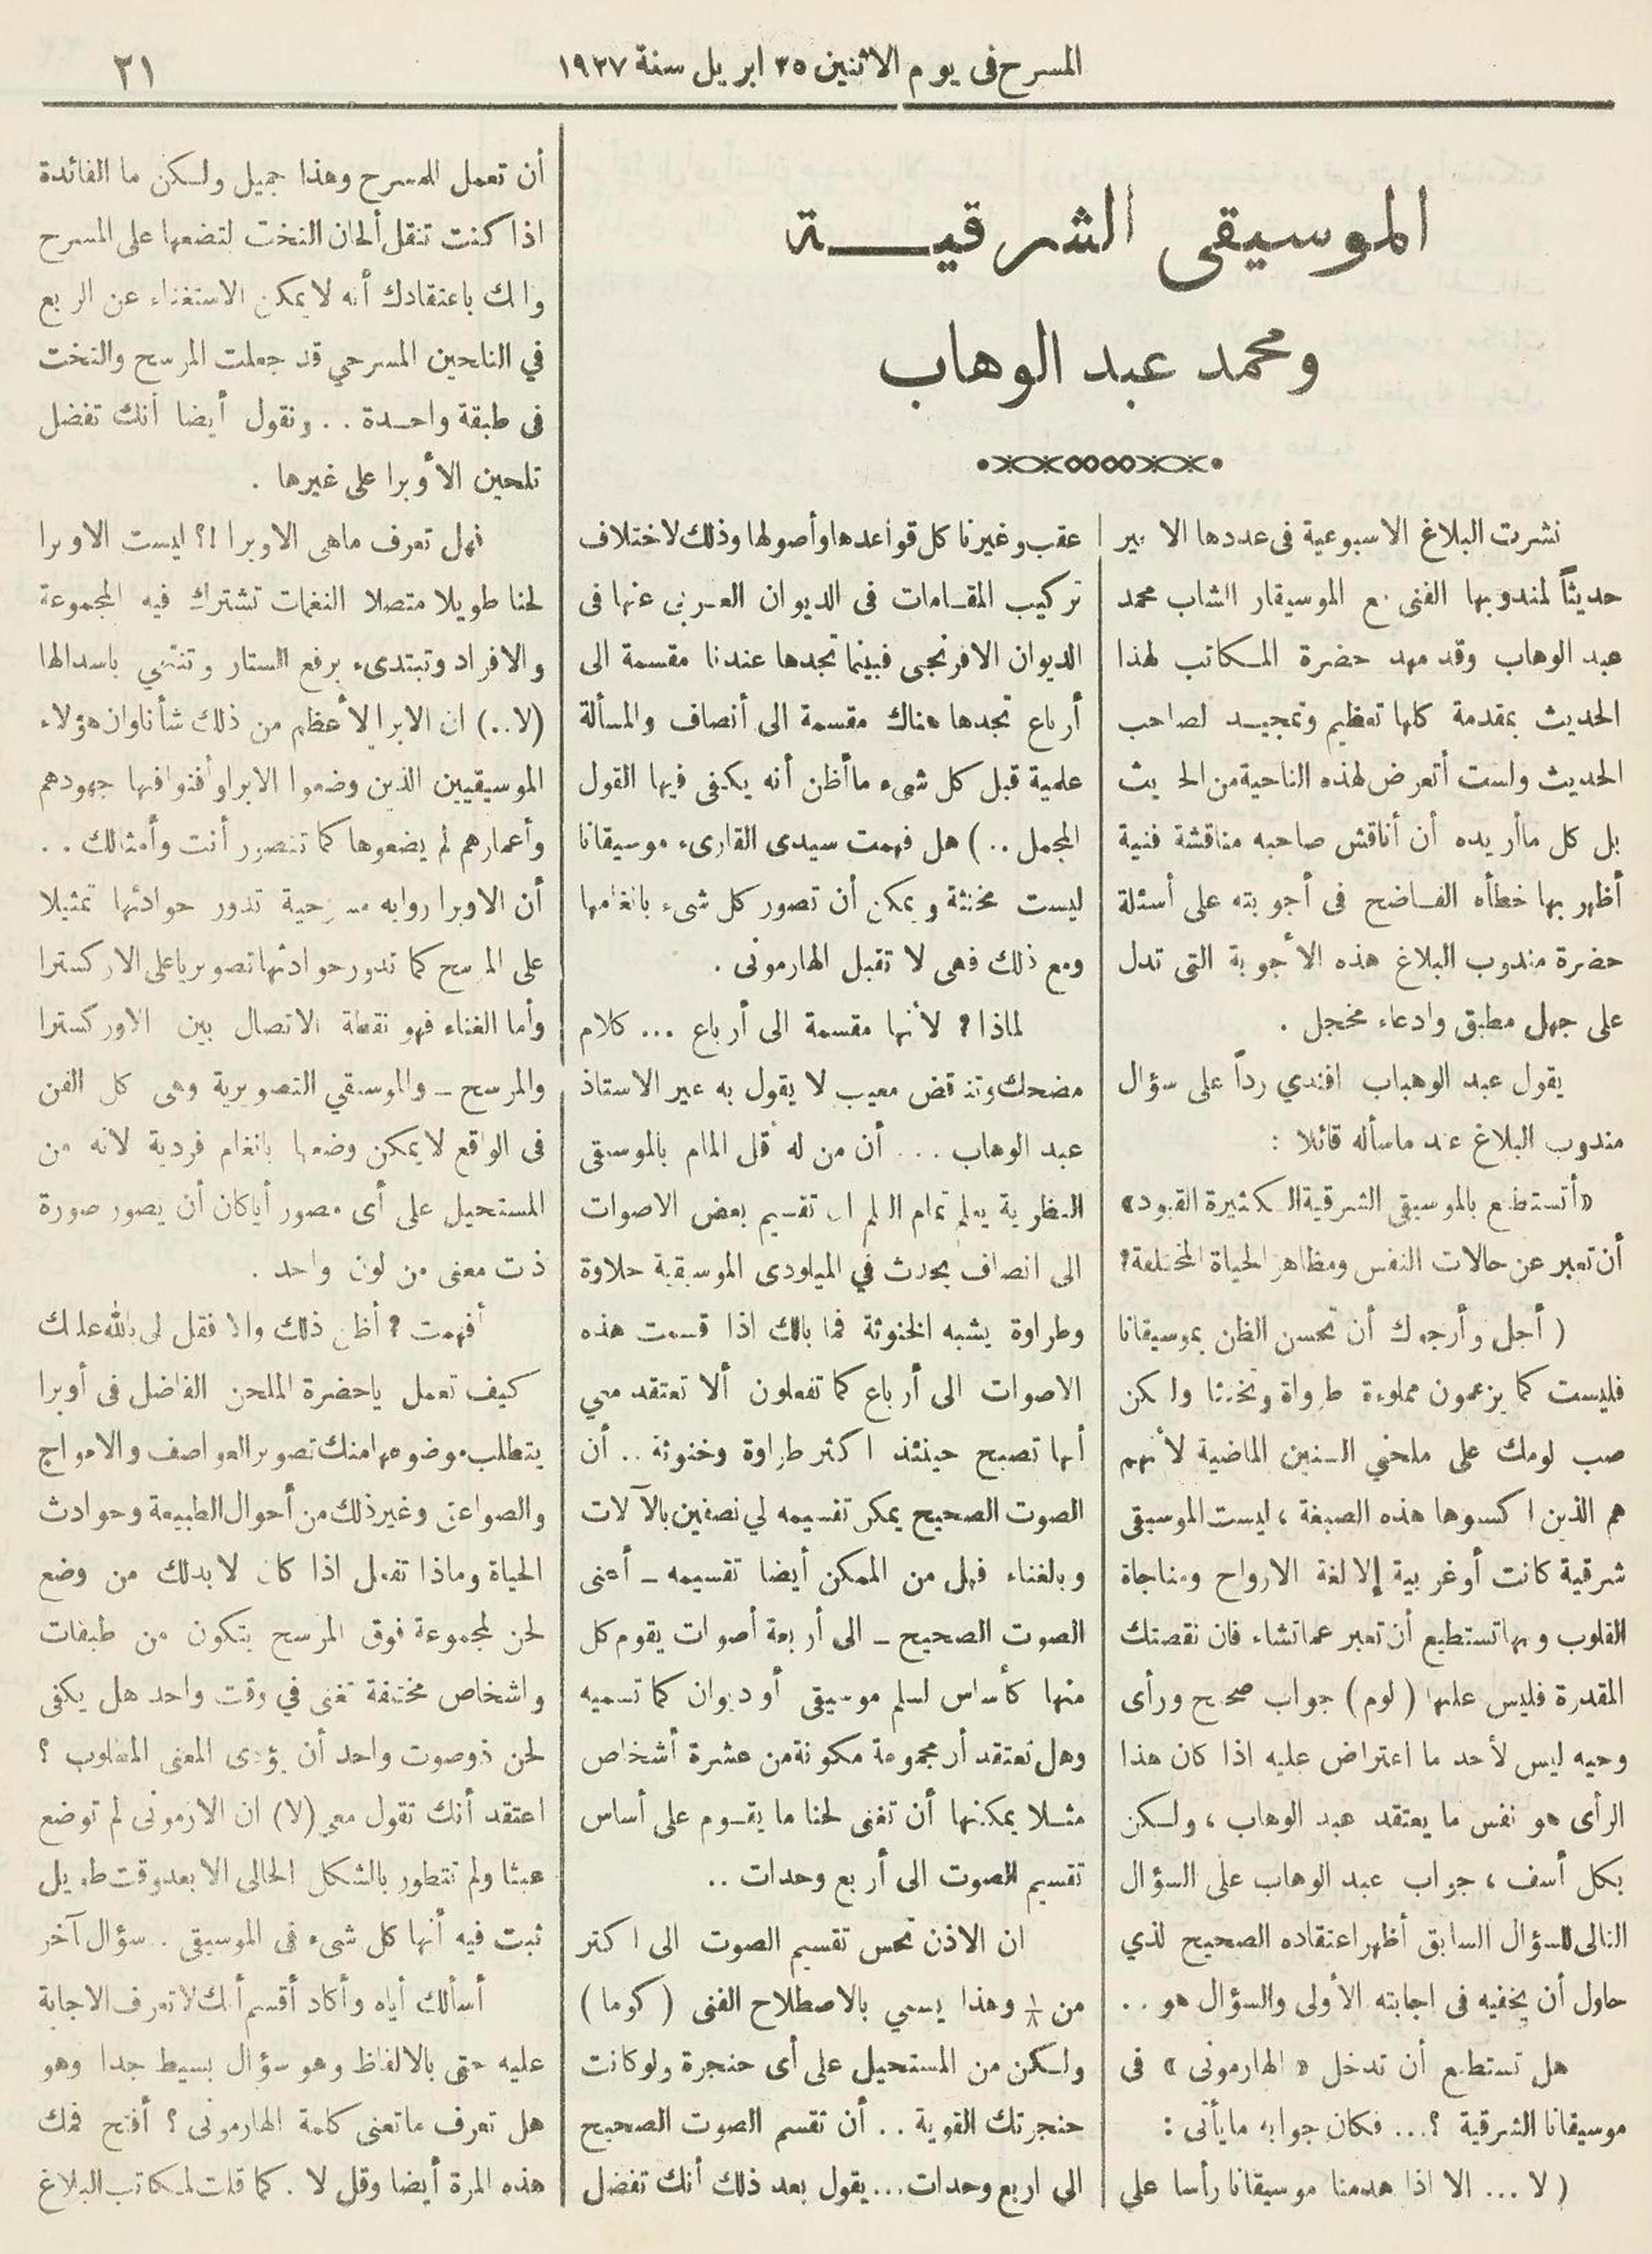 المسرح فى يوم الاثنين ٢٥ ابريل سنة ١٩٢٧
٢١
الموسيقى الشرقيـــة
ومحمد عبد الوهاب
نشرت البلاغ الاسبوعية فى عددها الاخير
حديثاً لمندوبها الفنى مع الموسيقار الشاب محمد
عبد الوهاب وقد مهد حضرة المكاتب لهذا
الحديث بمقدمة كلها تعظيم وتمجيد لصاحب
الحديث ولست أتعرض لهذه الناحية من الحديث
بل كل ما أريده أن أناقش صاحبه مناقشة فنية
أظهر بها خطأه الفاضح فى أجوبته على أسئلة
حضرة مندوب البلاغ هذه الأجوبة التى تدل
على جهل مطبق وادعاء مخجل .
يقول عبد الوهاب افندي رداً على سؤال
مندوب البلاغ عند ماسأله قائلا :
«أتستطيع بالموسيقى الشرقية الكثيرة القيود»
أن تعبر عن حالات النفس ومظاهر الحياة المختلفة؟
( أجل وأرجوك أن تحسن الظن بموسيقانا
فليست كما يزعمون مملوءة طراوة وتخنثا ولكن
صب لومك على ملحني السنين الماضية لأنهم
هم الذين اكسوها هذه الصبغة ، ليست الموسيقى
شرقية كانت أوغربية إلا لغة الارواح ومناجاة
القلوب وبها تستطيع أن تعبر عما تشاء فان نقصتك
المقدرة فليس عليها ( لوم ) جواب صحيح ورأى
وجيه ليس لأحد ما اعتراض عليه اذا كان هذا
الرأى هو نفس ما يعتقد عبد الوهاب ، ولكن
بكل أسف ، جواب عبد الوهاب على السؤال
التالى للسؤال السابق أظهر اعتقاده الصحيح لذي
حاول أن يخفيه فى اجابته الأولى والسؤال هو . .
هل تستطيع أن تدخل « الهارمونى » فى
موسيقانا الشرقية ؟... فكان جوابه مايأتى :
( لا ... الا اذا هدمنا موسيقانا رأسا على
عقب وغيرنا كل قواعدها وأصولها وذلك لاختلاف
تركيب المقامات فى الديوان العربى عنها فى
الديوان الافرنجى فبينما تجدها عندنا مقسمة الى
أرباع تجدها هناك مقسمة الى أنصاف والمسألة
علمية قبل كل شىء ماأظن أنه يكفى فيها القول
المجمل . . ) هل فهمت سيدى القارىء موسيقانا
ليست مخنثة ويمكن أن تصور كل شىء بانغامها
ومع ذلك فهى لا تقبل الهارمونى .
لماذا ؟ لأنها مقسمة الى أرباع ... كلام
مضحك وتناقض معيب لا يقول به غير الاستاذ
عبد الوهاب . . . أن من له أقل المام بالموسيقى
النظرية يعلم تمام العلم ان تقسيم بعض الاصوات
الى انصاف يحدث في الميلودى الموسيقية حلاوة
وطراوة يشبه الخنوثة فما بالك اذا قسمت هذه
الاصوات الى أرباع كما تفعلون ألا تعتقد معي
أنها تصبح حينئذ اكثر طراوة وخنوثة . . أن
الصوت الصحيح يمكن تقسيمه لي نصفين بالآلات
وبالغناء فهل من الممكن أيضا تقسيمه – أعنى
الصوت الصحيح – الى أربعة أصوات يقوم كل
منها كأساس لسلم موسيقى أو ديوان كما تسميه
وهل تعتقد أن مجموعة مكونة من عشرة أشخاص
مثلا يمكنها أن تغنى لحنا ما يقوم على أساس
تقسيم الصوت الى أربع وحدات . .
ان الاذن تحس تقسيم الصوت الى اكثر
من ١/٨ وهذا يسمي بالاصطلاح الفنى ( كوما )
ولكن من المستحيل على أى حنجرة ولوكانت
حنجرتك القوية . . أن تقسم الصوت الصحيح
الى اربع وحدات... يقول بعد ذلك أنك تفضل
أن تعمل للمسرح وهذا جميل ولكن ما الفائدة
اذا كنت تنقل ألحان التخت لتضعها على المسرح
وانك باعتقادك أنه لا يمكن الاستغناء عن الربع
في التلحين المسرحي قد جعلت المرسح والتخت
فى طبقة واحدة . . ونقول أيضا أنك تفضل
تلحين الأوبرا على غيرها .
فهل تعرف ماهى الاوبرا !؟ ليست الاوبرا
لحنا طويلا متصلا النغمات تشترك فيه المجموعة
والافراد وتبتدىء برفع الستار وتنتهي باسدالها
(لا..) ان الابرا لأعظم من ذلك شأنا وان هؤلاء
الموسيقيين الذين وضعوا الابرا وأفنوا فيها جهودهم
وأعمارهم لم يضعوها كما تتصور أنت وأمثالك . .
أن الاوبرا روايه مسرحية تدور حوادثها تمثيلا
على المرسح كما تدور حوادثها تصويريا على الاركسترا
وأما الغناء فهو نقطة الاتصال بين الاوركسترا
والمرسح – والموسيقي التصويرية وهى كل الفن
فى الواقع لا يمكن وضعها بانغام فردية لانه من
المستحيل على أى مصور أياكان أن يصور صورة
ذت معنى من لون واحد .
أفهمت ؟ أظن ذلك والا فقل لى بالله عليك
كيف تعمل ياحضرة الملحن الفاضل فى أوبرا
يتطلب موضوعها منك تصوير العواصف والامواج
والصواعق وغير ذلك من أحوال الطبيعة وحوادث
الحياة وماذا تفعل اذا كان لا بدلك من وضع
لحن لمجموعة فوق المرسح يتكون من طبقات
واشخاص مختلفة تغنى في وقت واحد هل يكفى
لحن ذوصوت واحد أن يؤدى المعنى المطلوب ؟
اعتقد أنك تقول معي (لا) ان الارمونى لم توضع
عبثا ولم تتطور بالشكل الحالى الا بعد وقت طويل
ثبت فيه أنها كل شىء فى الموسيقى . . سؤال آخر
أسألك أياه وأكاد أقسم أنك لا تعرف الاجابة
عليه حتى بالالفاظ وهو سؤال بسيط جدا وهو
هل تعرف ماتعنى كلمة الهارمونى ؟ أفتح فمك
هذه المرة أيضا وقل لا . كما قلت لمكاتب البلاغ